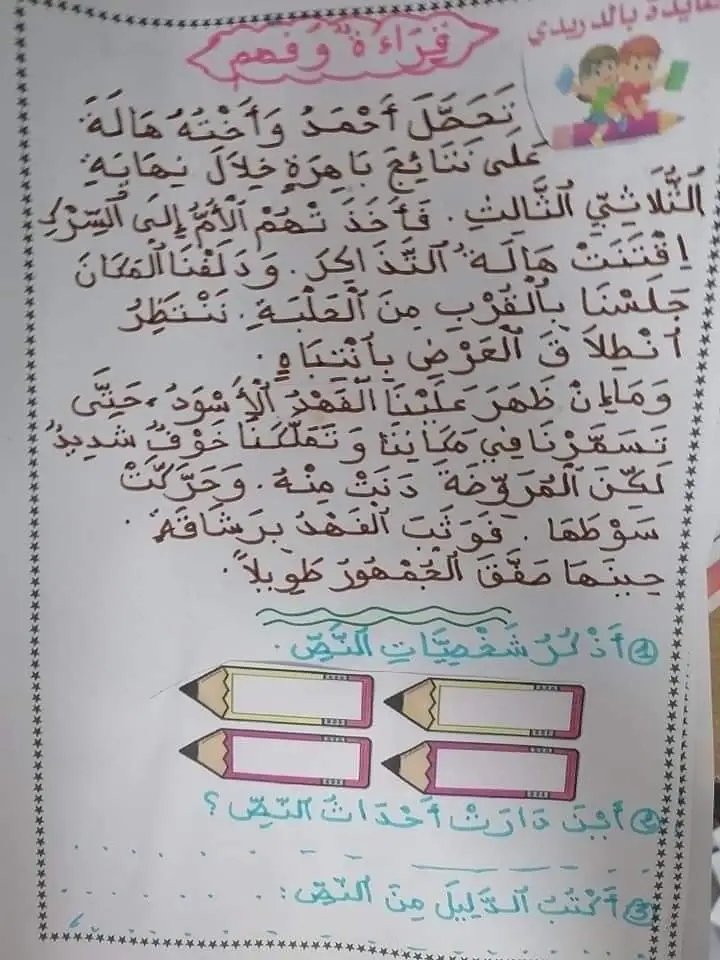 بالدريدي
قِرَاءَةٌ وَفَهْمٌ
تَحَصَّلَ أَحْمَدُ وَأُخْتُهُ هَالَةُ
عَلَى نَتَائِجَ بَاهِرَةٍ خِلَالَ نِهَايَةِ
الثُّلَاثِيِّ الثَّالِثِ. فَأَخَذَتْهُمْ الْأُمُّ إِلَى السِّرْكِ
اِقْتَنَتْ هَالَةُ التَّذَاكِرَ. وَدَلَفْنَا الْمَكَانَ
جَلَسْنَا بِالْقُرْبِ مِنَ الْحَلْبَةِ. نَنْتَظِرُ
اُنْطِلَاقَ الْعَرْضِ بِانْتِبَاهٍ.
وَمَا إِنْ ظَهَرَ عَلَيْنَا الْفَهْدُ الْأَسْوَدُ. حَتَّى
تَسَمَّرْنَا فِي مَكَانِنَا وَتَمَلَّكَنَا خَوْفٌ شَدِيدٌ
لَكِنَّ الْمُرَوِّضَةَ دَنَتْ مِنْهُ. وَحَرَّكَتْ
سَوْطَهَا. فَوَثَبَ الْفَهْدُ بِرَشَاقَةٍ.
حِينَهَا صَفَّقَ الْجُمْهُورُ طَوِيلًا.
① أَذْكُرُ شَخْصِيَّاتِ النَّصِّ.
② أَيْنَ دَارَتْ أَحْدَاثُ النَّصِّ؟
③ أَكْتُبُ الدَّلِيلَ مِنَ النَّصِّ: